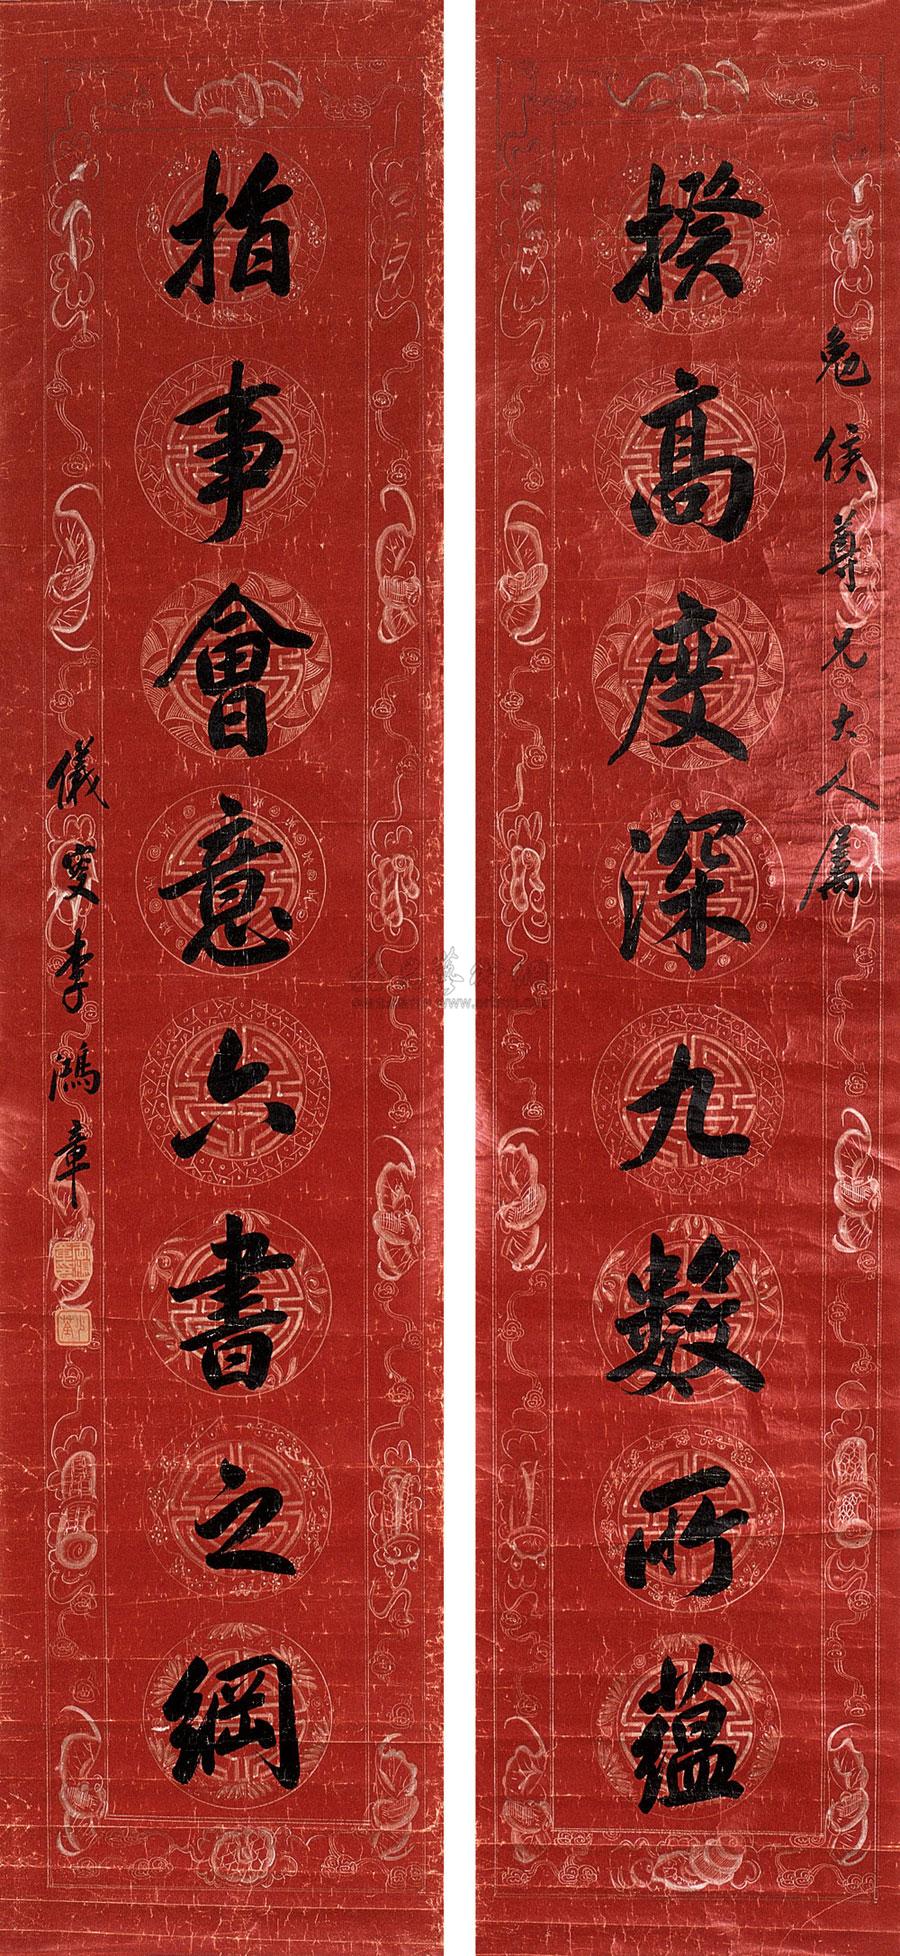 揆高度深九數所蘊
侯尊兄大人属
指事會意六書之綱
儀叟李鴻章